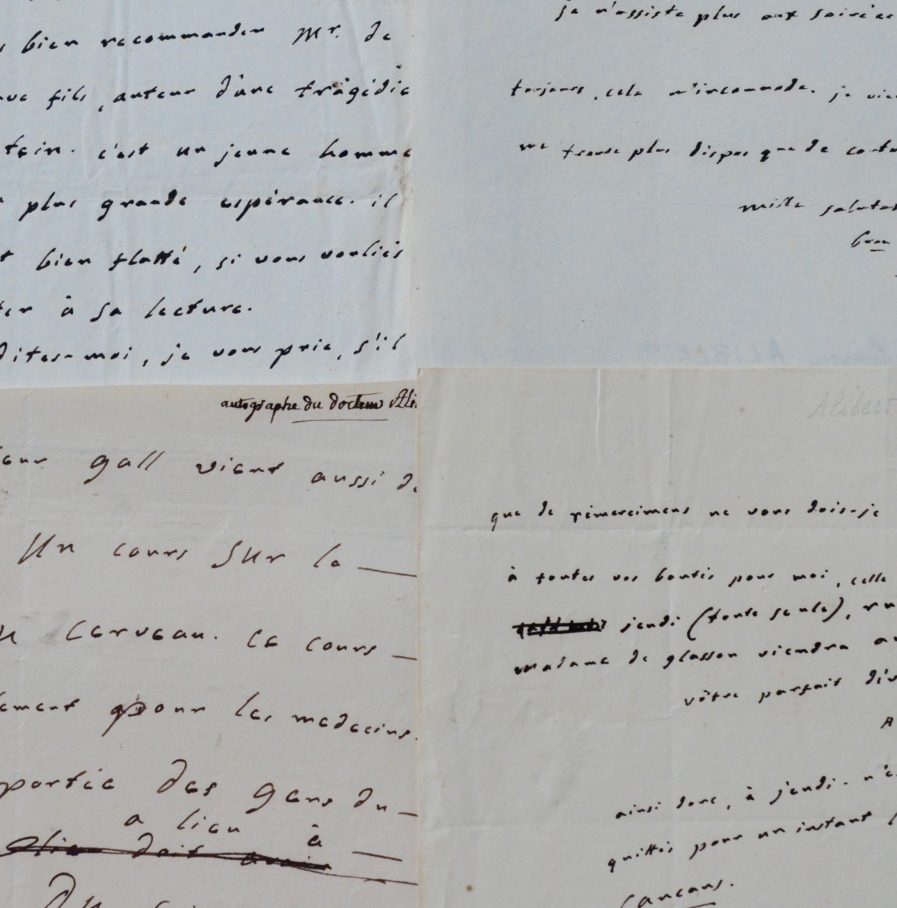 bien recommander Mr. de
fils, auteur d'une tragédie
c'est un jeune homme
plus grande espérance. il
bien flatté, si vous vouliés
à sa lecture.
dites-moi, je vous prie, s'il
je n'assiste plus aux soirées
toujours, cela m'incommode. je
me trouve plus dispos que de
mille
bon
ALIBERT
autographe du docteur Ali
gall vient aussi de
Un cours sur la
cerveau. ce cours
pour les medecins.
partie des gens du
a lieu à
doit avoir
Alibert
que de rémercimens ne vous dois-je
à toutes vos bontés pour moi, celle
jeudi (toute seule), 
madame de glasson viendra
vôtre parfait
A
ainsi donc, à jeudi.
quittés pour un instant
cancans.